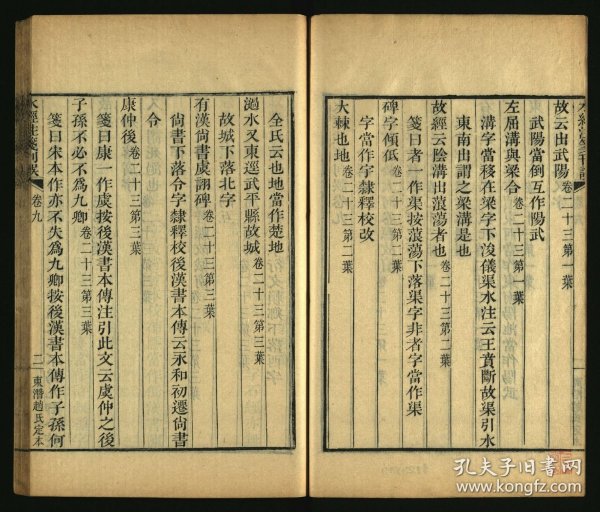 故云出武陽卷二十三第一葉
武陽當倒互作陽武
左屈溝與梁合卷二十三第一葉
溝字當移在梁字下浚儀渠水注云王賁斷故渠引水
東南出謂之梁溝是也
故經云陰溝出蒗蕩者也卷二十三第二葉
箋曰者一作渠按蒗蕩下落渠字非者字當作渠
碑字傾低卷二十三第二葉
字當作字隸釋校改
大棘也地卷二十三第二葉
全氏云也地當作楚地
濄水又東逕武平縣故城卷二十三第三葉
故城下落北字
有漢尚書虞詡碑卷二十三第三葉
尚書下落令字隸釋校後漢書本傳云永和初遷尚書
令
康仲後卷二十三第三葉
箋曰康一作虞按後漢書本傳注引此文云虞仲之後
子孫不必不爲九卿卷二十三第三葉
箋曰宋本作亦不失爲九卿按後漢書本傳作子孫何
水經注箋刊誤
卷九
二
東潛趙氏定本
孔夫子旧書网
www.kongfz.com